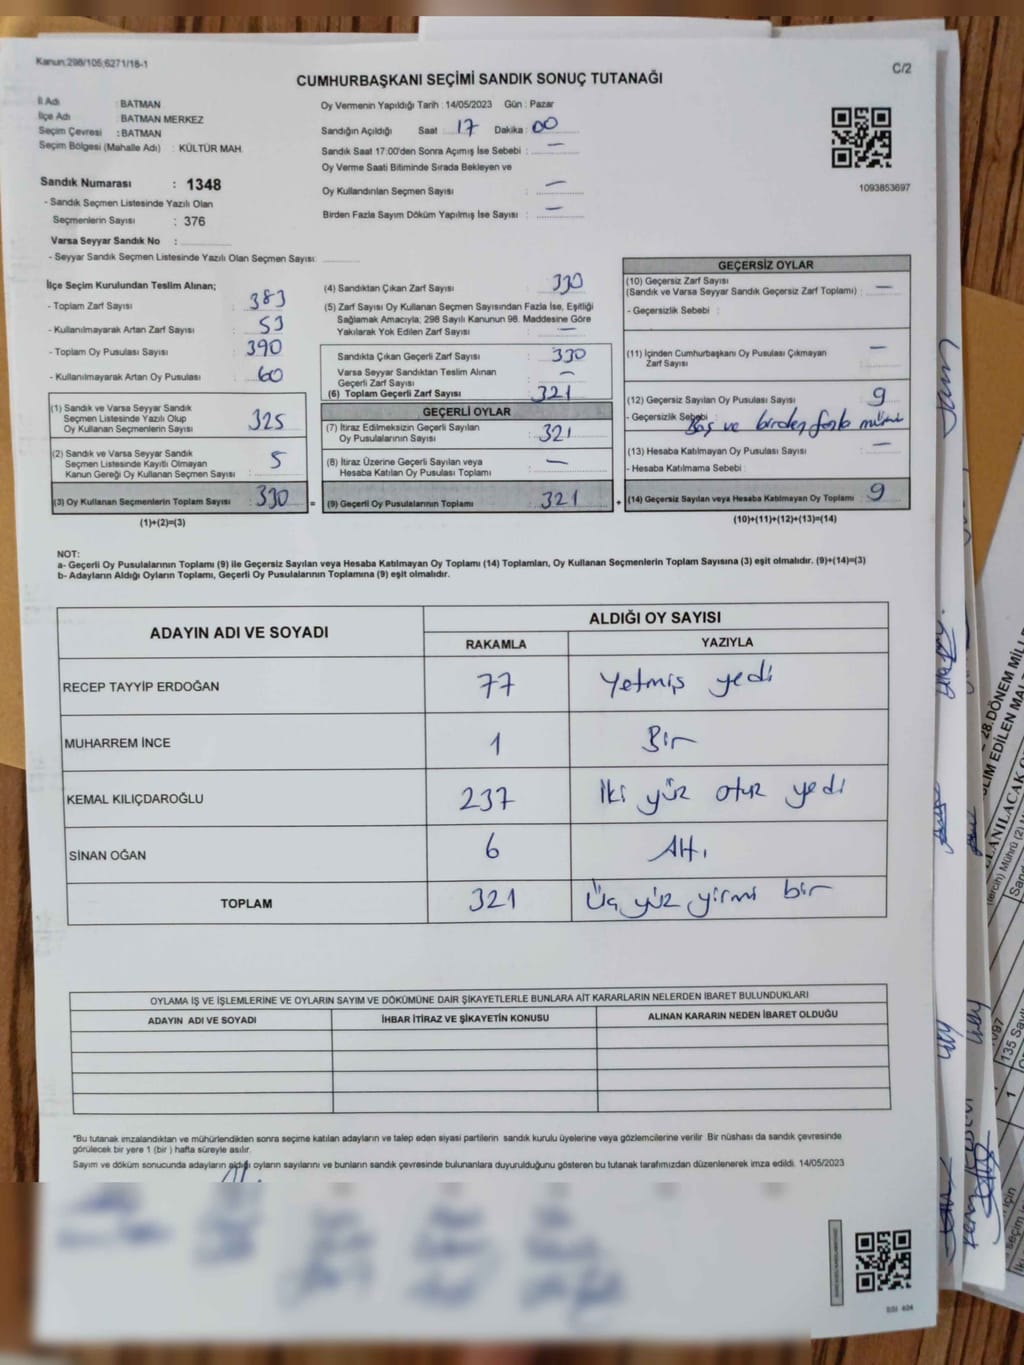 Kanun:298/105;6271/18-1
C/2
CUMHURBAŞKANI SEÇİMİ SANDIK SONUÇ TUTANAĞI
İl Adı : BATMAN
İlçe Adı : BATMAN MERKEZ
Seçim Çevresi : BATMAN
Seçim Bölgesi (Mahalle Adı) : KÜLTÜR MAH.
Sandık Numarası : 1348
- Sandık Seçmen Listesinde Yazılı Olan
Seçmenlerin Sayısı : 376
Varsa Seyyar Sandık No :
- Seyyar Sandık Seçmen Listesinde Yazılı Olan Seçmen Sayısı:
Oy Vermenin Yapıldığı Tarih : 14/05/2023 Gün : Pazar
Sandığın Açıldığı Saat : 17 Dakika : 00
Sandık Saat 17:00'den Sonra Açımış İse Sebebi : —
Oy Verme Saati Bitiminde Sırada Bekleyen ve
Oy Kullandırılan Seçmen Sayısı : —
Birden Fazla Sayım Döküm Yapılmış İse Sayısı : —
1093853697
İlçe Seçim Kurulundan Teslim Alınan;
- Toplam Zarf Sayısı : 383
- Kullanılmayarak Artan Zarf Sayısı : 53
- Toplam Oy Pusulası Sayısı : 390
- Kullanılmayarak Artan Oy Pusulası : 60
(1) Sandık ve Varsa Seyyar Sandık
Seçmen Listesinde Yazılı Olup
Oy Kullanan Seçmenlerin Sayısı : 325
(2) Sandık ve Varsa Seyyar Sandık
Seçmen Listesinde Kayıtlı Olmayan
Kanun Gereği Oy Kullanan Seçmen Sayısı : 5
(3) Oy Kullanan Seçmenlerin Toplam Sayısı : 330 =
(1)+(2)=(3)
(4) Sandıktan Çıkan Zarf Sayısı : 330
(5) Zarf Sayısı Oy Kullanan Seçmen Sayısından Fazla İse, Eşitliği
Sağlamak Amacıyla; 298 Sayılı Kanunun 98. Maddesine Göre
Yakılarak Yok Edilen Zarf Sayısı : —
Sandıkta Çıkan Geçerli Zarf Sayısı : 330
Varsa Seyyar Sandıktan Teslim Alınan
Geçerli Zarf Sayısı : —
(6) Toplam Geçerli Zarf Sayısı : 321
GEÇERLİ OYLAR
(7) İtiraz Edilmeksizin Geçerli Sayılan
Oy Pusulalarının Sayısı : 321
(8) İtiraz Üzerine Geçerli Sayılan veya
Hesaba Katılan Oy Pusulası Toplamı : —
(9) Geçerli Oy Pusulalarının Toplamı : 321 +
GEÇERSİZ OYLAR
(10) Geçersiz Zarf Sayısı
(Sandık ve Varsa Seyyar Sandık Geçersiz Zarf Toplamı) : —
- Geçersizlik Sebebi :
(11) İçinden Cumhurbaşkanı Oy Pusulası Çıkmayan
Zarf Sayısı : —
(12) Geçersiz Sayılan Oy Pusulası Sayısı : 9
- Geçersizlik Sebebi : Boş ve birden fazla mühür
(13) Hesaba Katılmayan Oy Pusulası Sayısı : —
- Hesaba Katılmama Sebebi :
(14) Geçersiz Sayılan veya Hesaba Katılmayan Oy Toplamı : 9
(10)+(11)+(12)+(13)=(14)
NOT:
a- Geçerli Oy Pusulalarının Toplamı (9) ile Geçersiz Sayılan veya Hesaba Katılmayan Oy Toplamı (14) Toplamları, Oy Kullanan Seçmenlerin Toplam Sayısına (3) eşit olmalıdır. (9)+(14)=(3)
b- Adayların Aldığı Oyların Toplamı, Geçerli Oy Pusulalarının Toplamına (9) eşit olmalıdır.
ADAYIN ADI VE SOYADI ALDIĞI OY SAYISI
RAKAMLA YAZIYLA
RECEP TAYYİP ERDOĞAN 77 Yetmiş yedi
MUHARREM İNCE 1 Bir
KEMAL KILIÇDAROĞLU 237 İki yüz otuz yedi
SİNAN OĞAN 6 Altı
TOPLAM 321 Üç yüz yirmi bir
OYLAMA İŞ VE İŞLEMLERİNE VE OYLARIN SAYIM VE DÖKÜMÜNE DAİR ŞİKAYETLERLE BUNLARA AİT KARARLARIN NELERDEN İBARET BULUNDUKLARI
ADAYIN ADI VE SOYADI İHBAR İTİRAZ VE ŞİKAYETİN KONUSU ALINAN KARARIN NEDEN İBARET OLDUĞU
"Bu tutanak imzalandıktan ve mühürlendikten sonra seçime katılan adayların ve talep eden siyasi partilerin sandık kurulu üyelerine veya gözlemcilerine verilir. Bir nüshası da sandık çevresinde
görülecek bir yere 1 (bir) hafta süreyle asılır.
Sayım ve döküm sonucunda adayların aldığı oyların sayılarını ve bunların sandık çevresinde bulunanlara duyurulduğunu gösteren bu tutanak tarafımızdan düzenlenerek imza edildi. 14/05/2023
28.DÖNEM MİLL
135 Sayılı